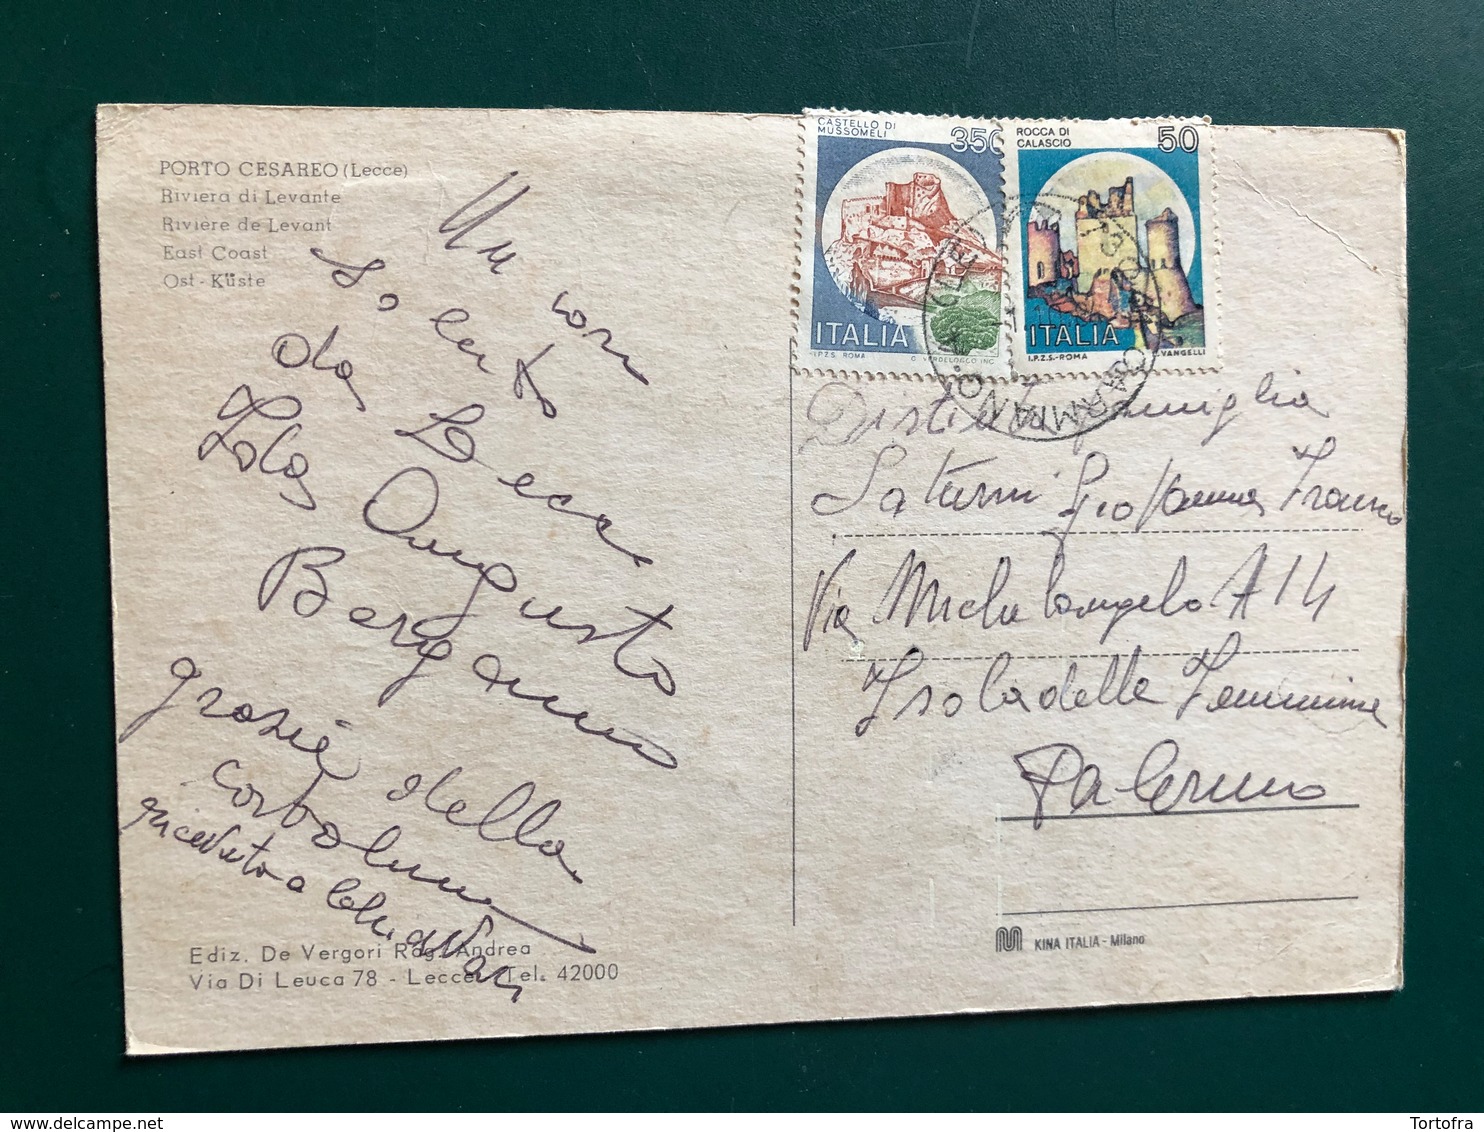 PORTO CESAREO (Lecce)
Riviera di Levante
Riviere de Levant
East Coast
Ost-Küste
Un
saluto con
da Lecce
Lola Augusto
Bergamo
grazie della
cartolina
ricevuta a
Ediz. De Vergori Rag. Andrea
Via Di Leuca 78 - Lecce - Tel. 42000
CASTELLO DI
MUSSOMELI
350
ITALIA
I.P.Z.S. ROMA
ROCCA DI
CALASCIO
50
ITALIA
I.P.Z.S.-ROMA
VANGELLI
Distinta Famiglia
Saturni Giovanna Franco
Via Michelangelo A 14
Isola delle Femmine
Palermo
KINA ITALIA - Milano
delcampe.net
Tortofra